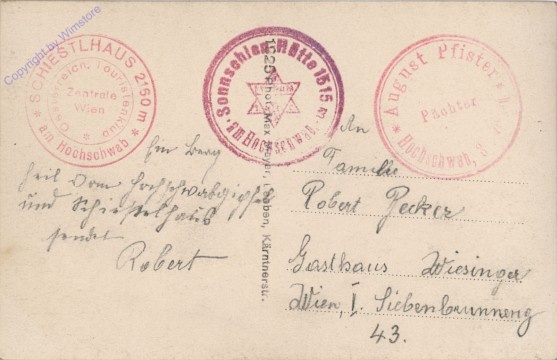 Copyright by Wimstore
* SCHIESTLHAUS 2150 m *
am Hochschwab
Oesterreich. Touristenklub
Zentrale
Wien
Sonnschien Hütte 1515 m
am Hochschwab.
August Pfister
Pächter
* Hochschwab,
1925 Phot. Max Leoben, Kärntnerstr.
Ein Berg
heil vom Hochschwabgipfel
und Schiestlhaus
sendet
Robert
An
Familie
Robert Becker
Gasthaus Wiesinger
Wien, I. Siebenbrunneng
43.